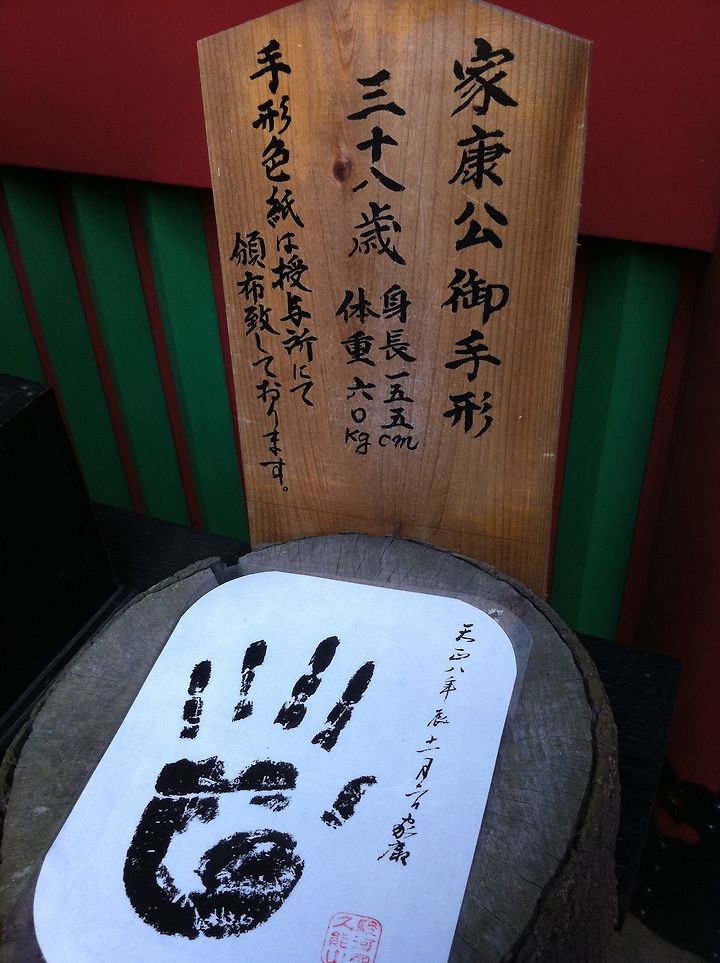 家康公御手形
三十八歳
身長一五五cm
体重六〇kg
手形色紙は授与所にて
頒布致しております。
天正八年辰十一月
家康
駿河
久能山